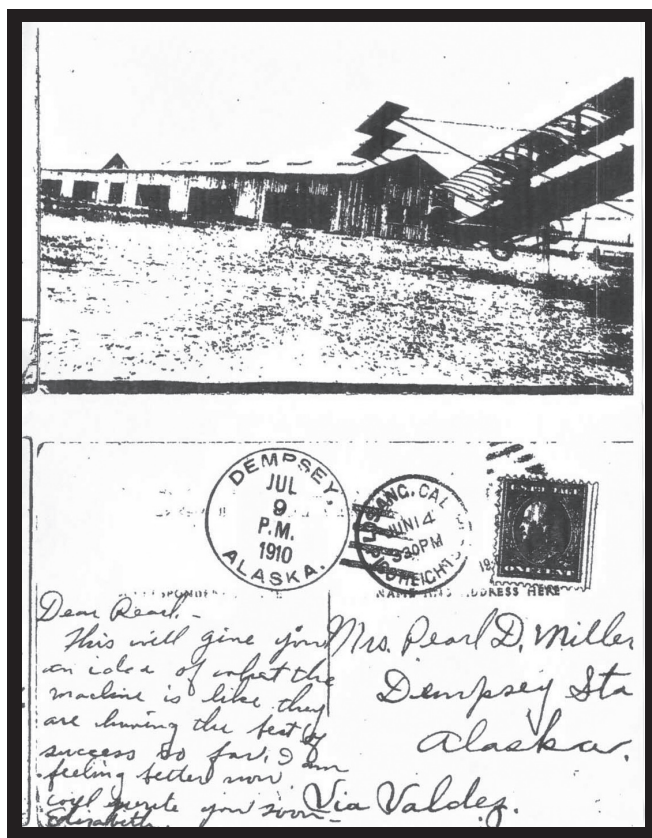 DEMPSEY,
JUL
9
P.M.
1910
ALASKA.
LOS ANG, CAL
JUN 14
3 30 PM
HEIGHTS
ONE CENT
NAME AND ADDRESS HERE
Dear Pearl.-
This will give you
an idea of what the
machine is like they
are having the best of
success so far, I am
feeling better now
will write you soon-
Elizabeth.
Mrs. Pearl D. Miller
Dempsey Sta
Alaska.
Via Valdez.